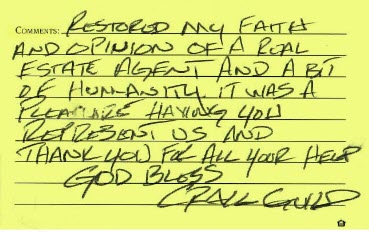 COMMENTS: RESTORED MY FAITH
AND OPINION OF A REAL
ESTATE AGENT AND A BIT
OF HUMANITY. IT WAS A
PLEASURE HAVING YOU
REPRESENT US AND
THANK YOU FOR ALL YOUR HELP
GOD BLESS
CRAIG GUILD